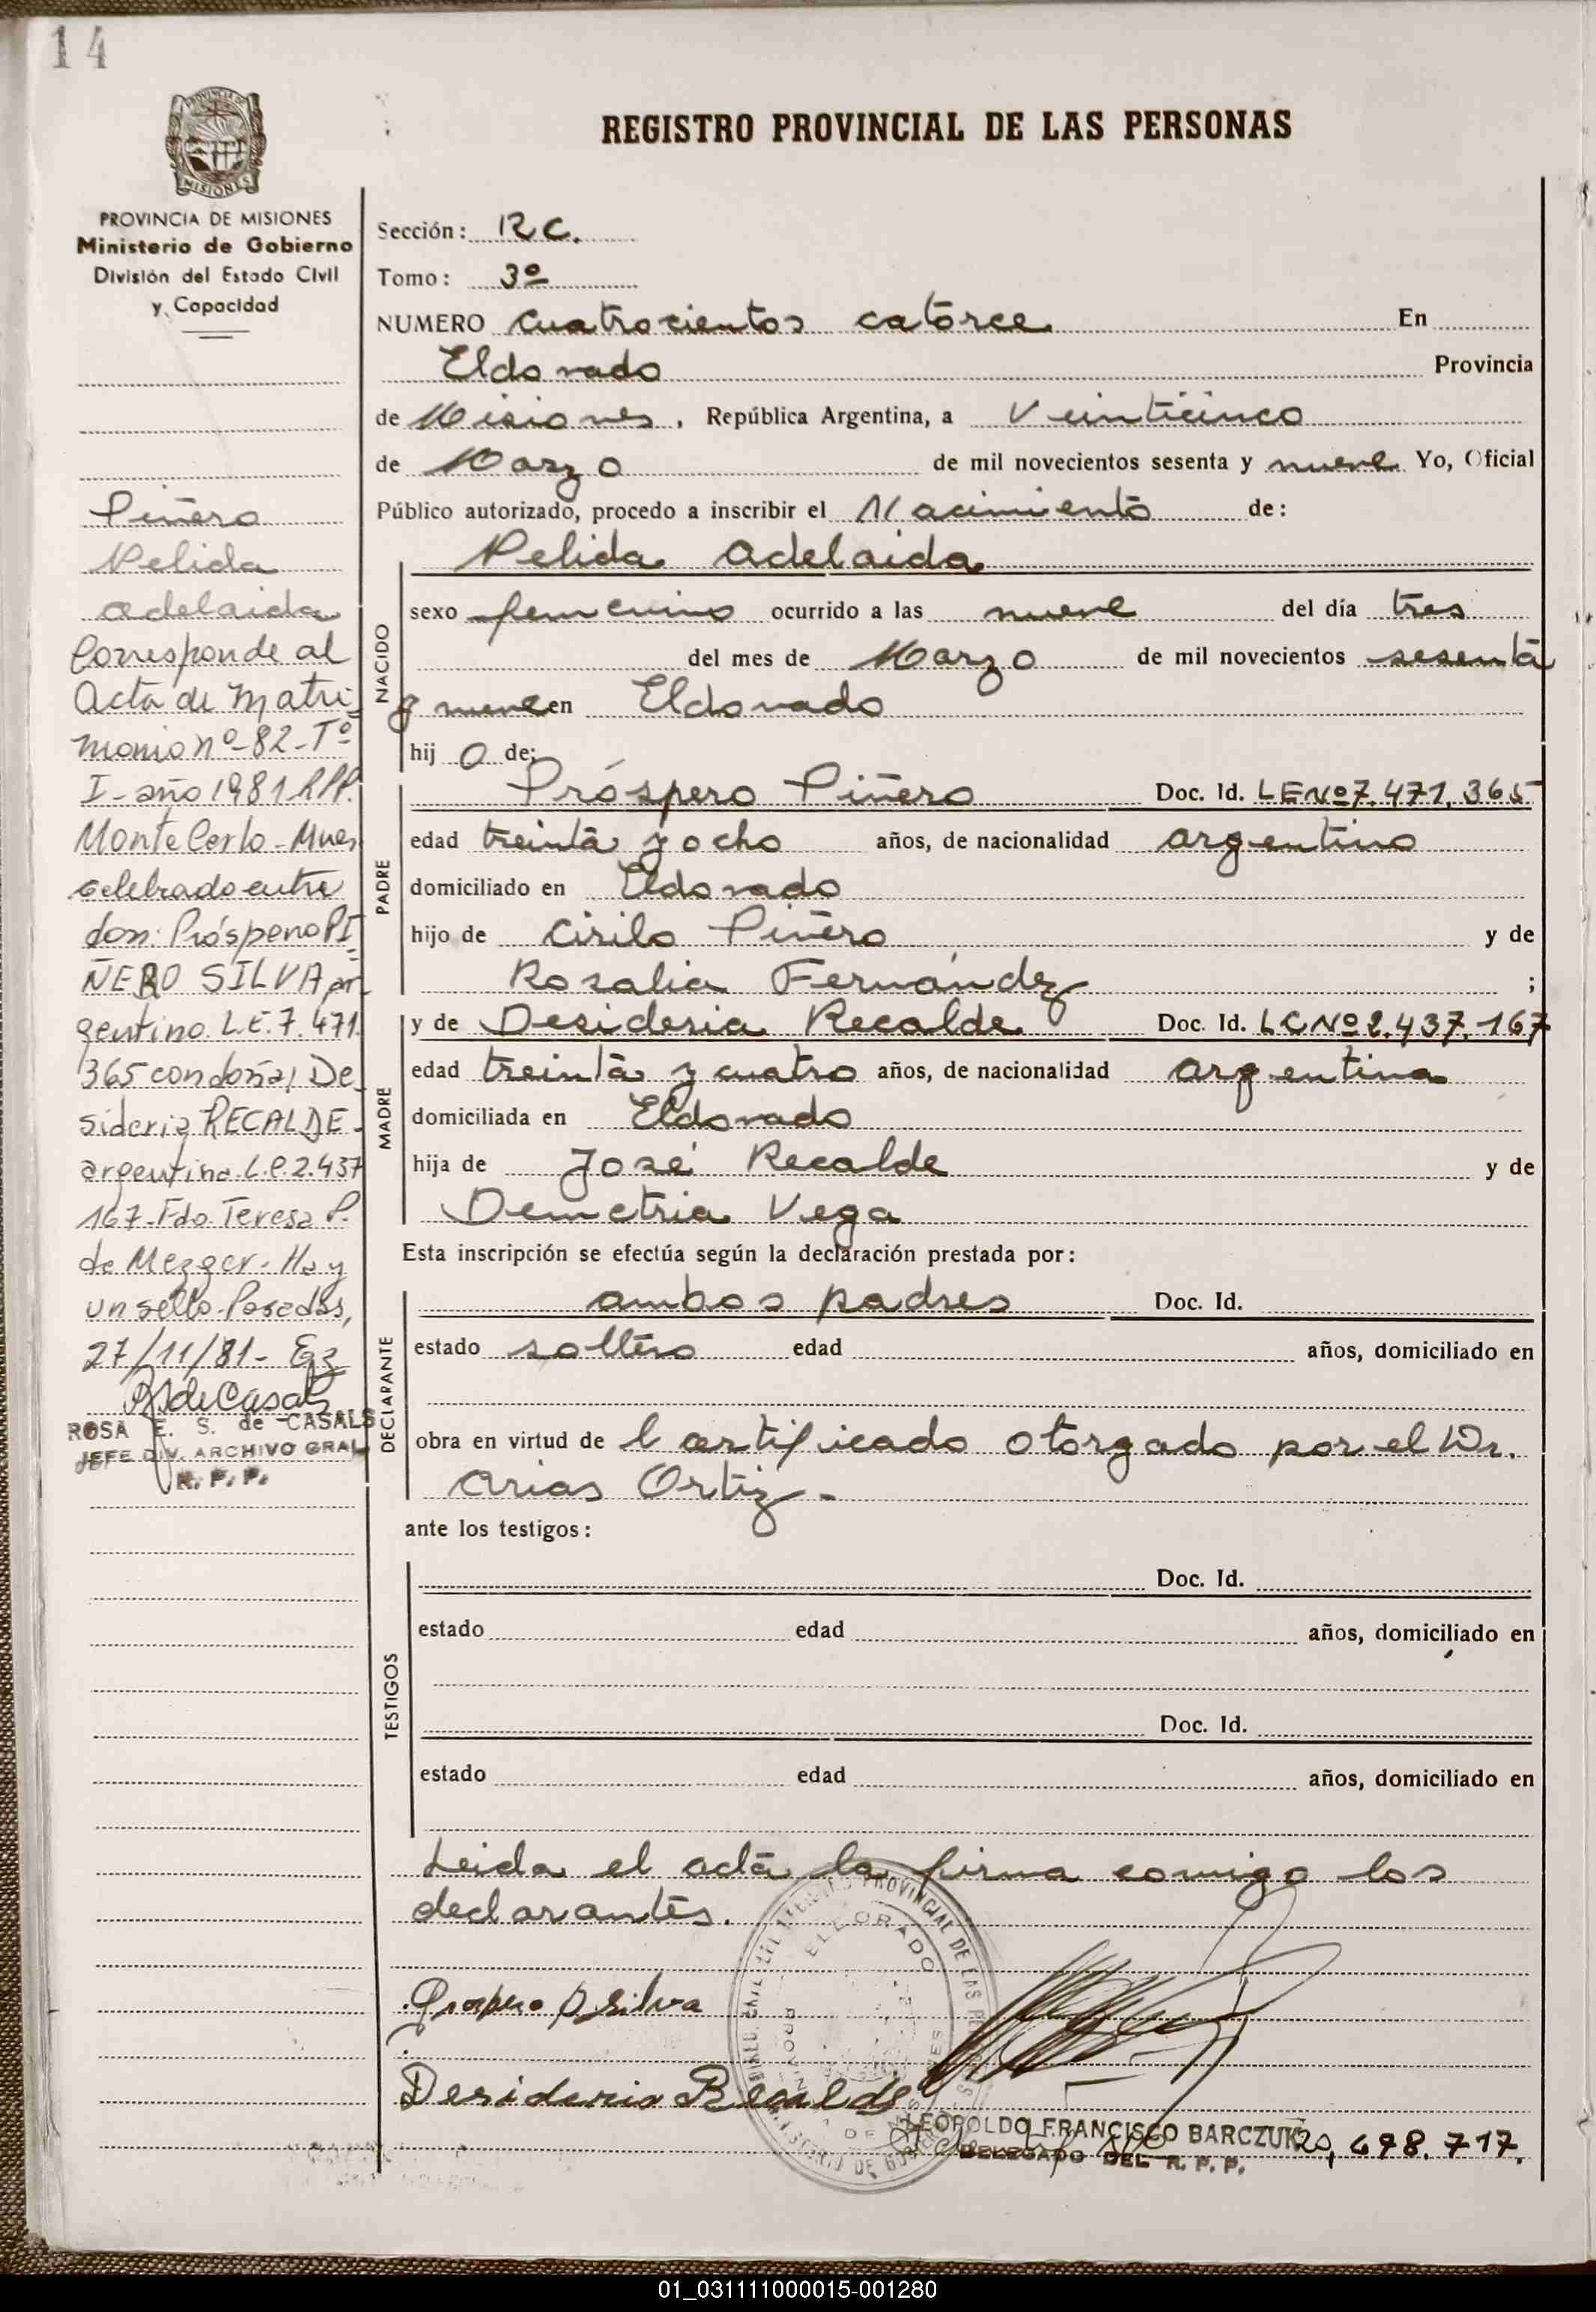 14
REGISTRO PROVINCIAL DE LAS PERSONAS
PROVINCIA DE MISIONES
Ministerio de Gobierno
División del Estado Civil
y Capacidad
Piñero
Nelida
adelaida
Corresponde al
Acta de Matri-
monio nº-82-Tº
I-año 1981 RPP.
Monte Carlo-Mnes
celebrado entre
don: Próspero PI-
ÑERO SILVA ar-
gentino. L.E. 7.471.
365 con doña, De-
sideria RECALDE-
argentina L.C. 2.437
167-Fdo. Teresa P.
de Mezger. Hay
un sello-Posadas,
27/11/81-
ROSA E. S. de CASALS
JEFE DIV. ARCHIVO GRAL
R. P. P.
Sección: R C.
Tomo: 3º
NUMERO Cuatrocientos catorce En
Eldorado Provincia
de Misiones, República Argentina, a Veinticinco
de Marzo de mil novecientos sesenta y nueve Yo, Oficial
Público autorizado, procedo a inscribir el Nacimiento de:
Nelida adelaida
NACIDO
sexo femenino ocurrido a las nueve del día tres
del mes de Marzo de mil novecientos sesenta
y nueve en Eldorado
hij a de:
PADRE
Próspero Piñero Doc. Id. LE Nº 7.471.365
edad treinta y ocho años, de nacionalidad argentino
domiciliado en Eldorado
hijo de Cirilo Piñero y de
Rosalia Fernández ;
MADRE
y de Desideria Recalde Doc. Id. LC Nº 2.437.167
edad treinta y cuatro años, de nacionalidad argentina
domiciliada en Eldorado
hija de José Recalde y de
Demetria Vega
Esta inscripción se efectúa según la declaración prestada por:
DECLARANTE
ambos padres Doc. Id.
estado soltero edad años, domiciliado en
obra en virtud de Certificado otorgado por el Dr.
Arias Ortiz-
ante los testigos:
TESTIGOS
Doc. Id.
estado edad años, domiciliado en
Doc. Id.
estado edad años, domiciliado en
Leida el acta la firma comigo los
declarantes.
Prospero P Silva
Desideria Recalde
ELDORADO
LEOPOLDO FRANCISCO BARCZUK
DELEGADO DEL R. P. P.
698.717.
01_031111000015-001280